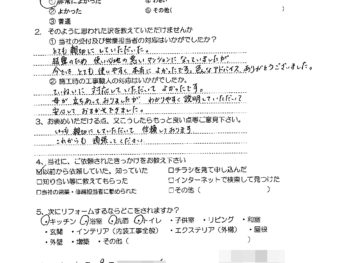 ① 非常によかった ④ 悪い
② よかった ⑤ その他(
③ 普通
2. そのように思われた訳を教えていただけませんか
① 当社の受付及び営業担当者の対応はいかがでしたか?
とても親切にしていただいた。
段差のため使い心地の悪いキッチンになっていましたが
今では、とても使いやすく本当によかったです。色々なアドバイスありがとうございました。
② 施工時の工事職人の対応はいかがでしたか?
ていねいに対応していただいてよかったです。
母が立ち会っておりましたが、わかりやすく説明していただいて
安心しておまかせできました。
3. お褒めいただける点、又こうしたらもっと良い点等ご意見下さい。
いつも親切にしていただいて信頼しております。
これからも頑張ってください。
4. 当社に、ご依頼されたきっかけをお教え下さい
☑以前から依頼していた。知っていた □チラシを見て申し込んだ
□知り合い等に教えてもらった □インターネットで検索して見つけた
□当社の営業・職人に訪問されて □その他(
5. 次にリフォームするならどこをされますか?
・キッチン ・浴室 ・洗面 ・トイレ ・子供室 ・リビング ・和室
・玄関 ・インテリア(内装工事全般) ・エクステリア(外構) ・屋根
・外壁 ・増築 ・その他(